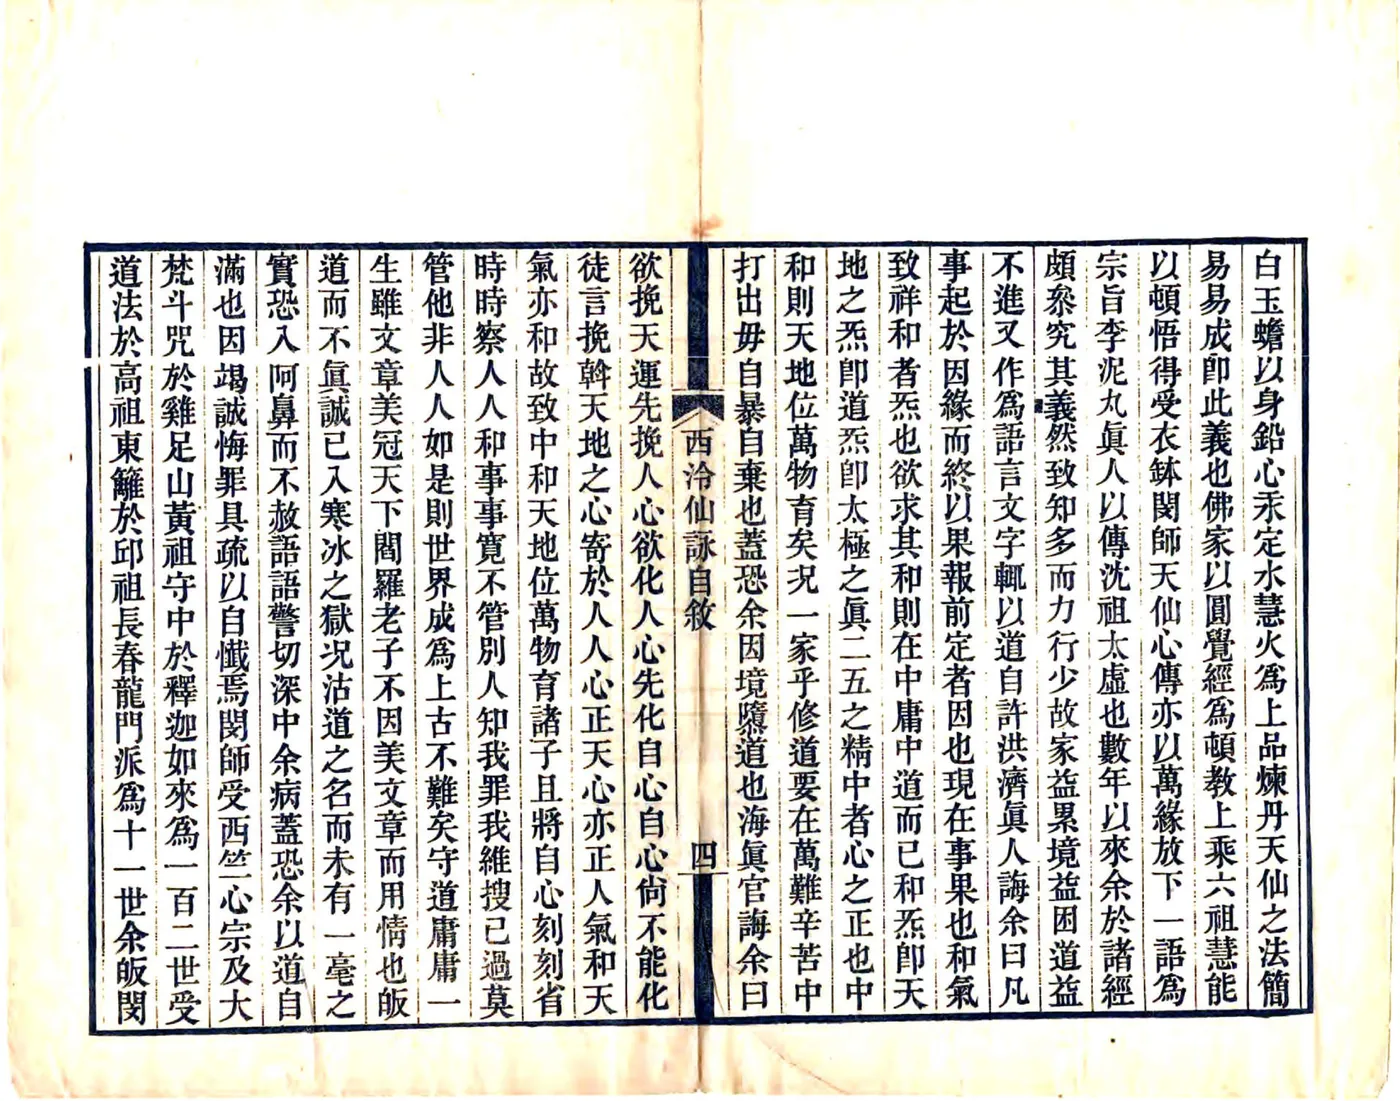 白玉蟾以身鉛心汞定水慧火爲上品煉丹天仙之法簡
易易成卽此義也佛家以圓覺經爲頓教上乘六祖慧能
以頓悟得受衣鉢閔師天仙心傳亦以萬緣放下一語爲
宗旨李泥丸眞人以傳沈祖太虛也數年以來余於諸經
頗叅究其義然致知多而力行少故家益累境益困道益
不進又作爲語言文字輒以道自許洪濟眞人誨余曰凡
事起於因緣而終以果報前定者因也現在事果也和氣
致祥和者炁也欲求其和則在中庸中道而已和炁卽天
地之炁卽道炁卽太極之眞二五之精中者心之正也中
和則天地位萬物育矣况一家乎修道要在萬難辛苦中
打出毋自暴自棄也蓋恐余因境隳道也海眞官誨余曰
西泠仙詠自敘
四
欲挽天運先挽人心欲化人心先化自心自心尙不能化
徒言挽斡天地之心寄於人人心正天心亦正人氣和天
氣亦和故致中和天地位萬物育諸子且將自心刻刻省
時時察人人和事事寬不管別人知我罪我維搜已過莫
管他非人人如是則世界成爲上古不難矣守道庸庸一
生雖文章美冠天下閻羅老子不因美文章而用情也皈
道而不眞誠已入寒冰之獄况沽道之名而未有一毫之
實恐入阿鼻而不赦語語警切深中余病蓋恐余以道自
滿也因竭誠悔罪具疏以自懺焉閔師受西竺心宗及大
梵斗咒於雞足山黃祖守中於釋迦如來爲一百二世受
道法於高祖東籬於邱祖長春龍門派爲十一世余皈閔